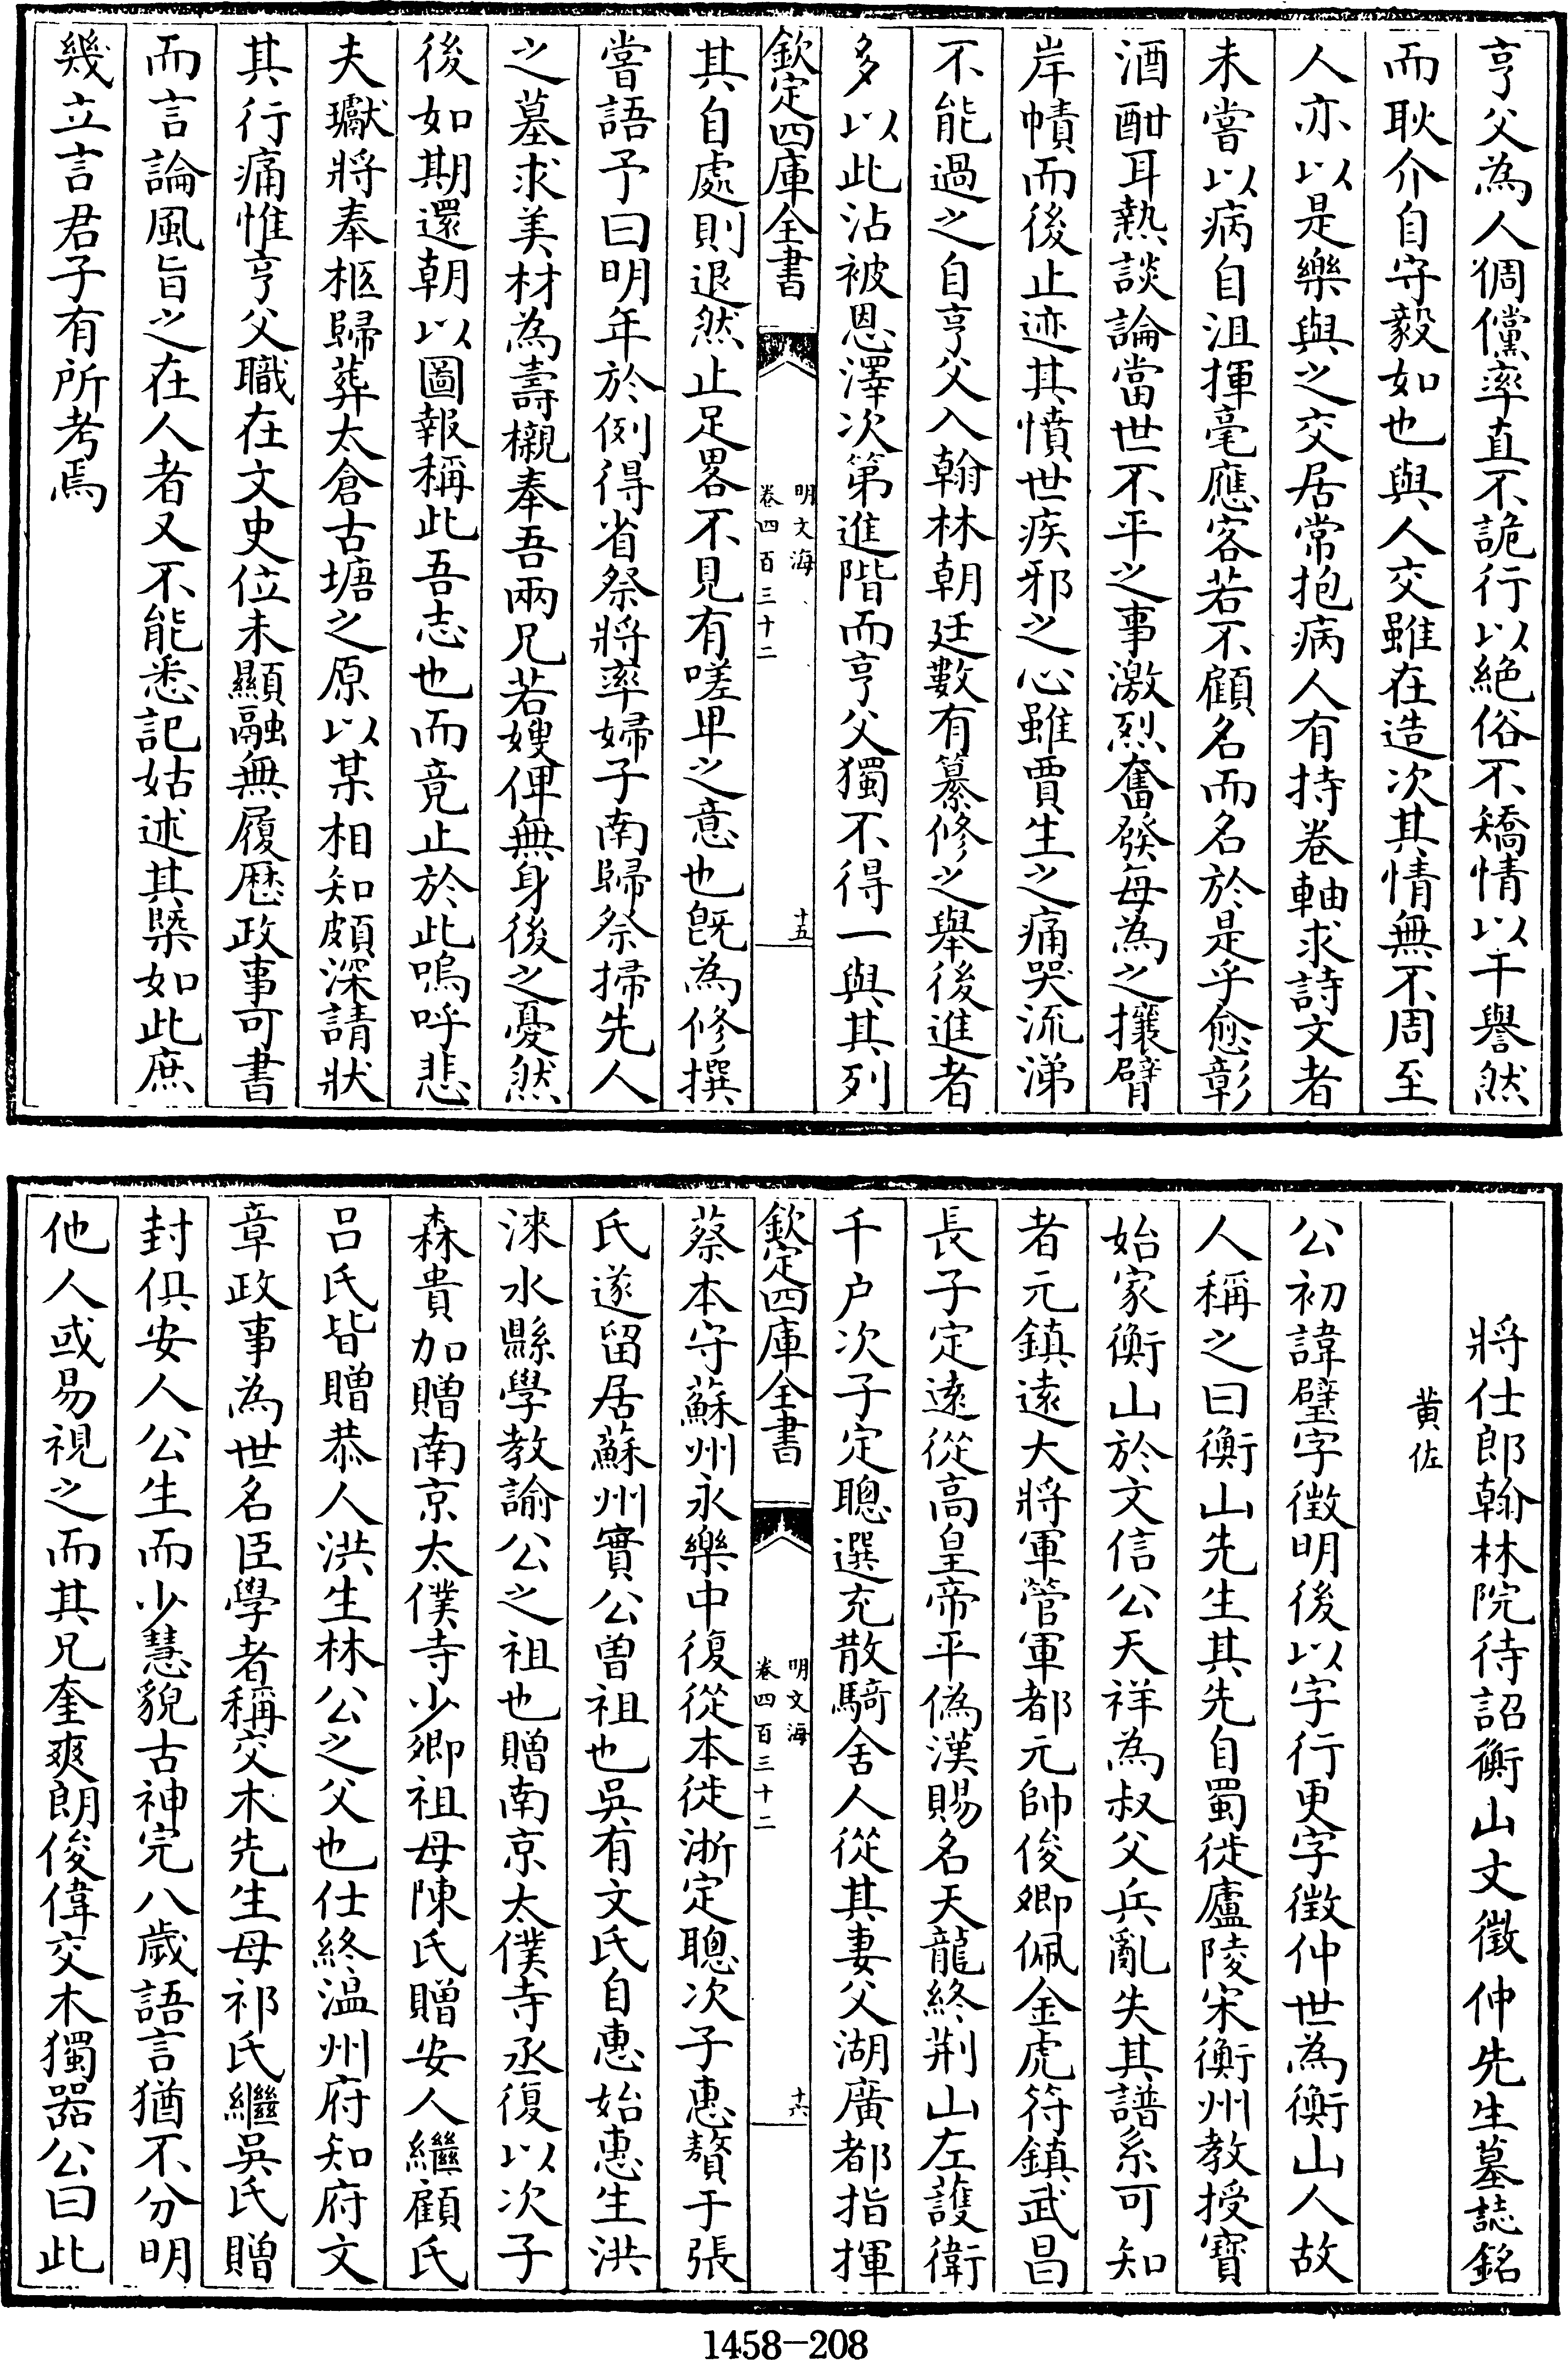 亨父為人倜儻率直不詭行以絶俗不矯情以干譽然
而耿介自守毅如也與人交雖在造次其情無不周至
人亦以是樂與之交居常抱病人有持卷軸求詩文者
未嘗以病自沮揮毫應客若不顧名而名於是乎愈彰
酒酣耳熱談論當世不平之事激烈奮發每為之攘臂
岸幘而後止迹其憤世疾邪之心雖賈生之痛哭流涕
不能過之自亨父入翰林朝廷數有纂修之舉後進者
多以此沾被恩澤次第進階而亨父獨不得一與其列
欽定四庫全書
明文海
卷四百三十二
十五
其自處則退然止足畧不見有嗟卑之意也既為修撰
嘗語予曰明年於例得省祭將率婦子南歸祭掃先人
之墓求美材為壽櫬奉吾兩兄若嫂俾無身後之憂然
後如期還朝以圖報稱此吾志也而竟止於此嗚呼悲
夫瓛將奉柩歸葬太倉古塘之原以某相知頗深請狀
其行痛惟亨父職在文史位未顯融無履歴政事可書
而言論風旨之在人者又不能悉記姑述其槩如此庶
幾立言君子有所考焉
將仕郎翰林院待詔衡山文徵仲先生墓誌銘
黄佐
公初諱璧字徵明後以字行更字徵仲世為衡山人故
人稱之曰衡山先生其先自蜀徙廬陵宋衡州教授寶
始家衡山於文信公天祥為叔父兵亂失其譜系可知
者元鎮遠大將軍管軍都元帥俊卿佩金虎符鎮武昌
長子定遠從高皇帝平偽漢賜名天龍終荆山左護衛
千户次子定聰選充散騎舍人從其妻父湖廣都指揮
欽定四庫全書
明文海
卷四百三十二
十六
蔡本守蘇州永樂中復從本徙浙定聰次子惠贅于張
氏遂留居蘇州實公曽祖也吳有文氏自惠始惠生洪
淶水縣學教諭公之祖也贈南京太僕寺丞復以次子
森貴加贈南京太僕寺少卿祖母陳氏贈安人繼顧氏
吕氏皆贈恭人洪生林公之父也仕終温州府知府文
章政事為世名臣學者稱交木先生母祁氏繼吳氏贈
封俱安人公生而少慧貌古神完八歲語言猶不分明
他人或易視之而其兄奎爽朗俊偉交木獨器公曰此
1458-208